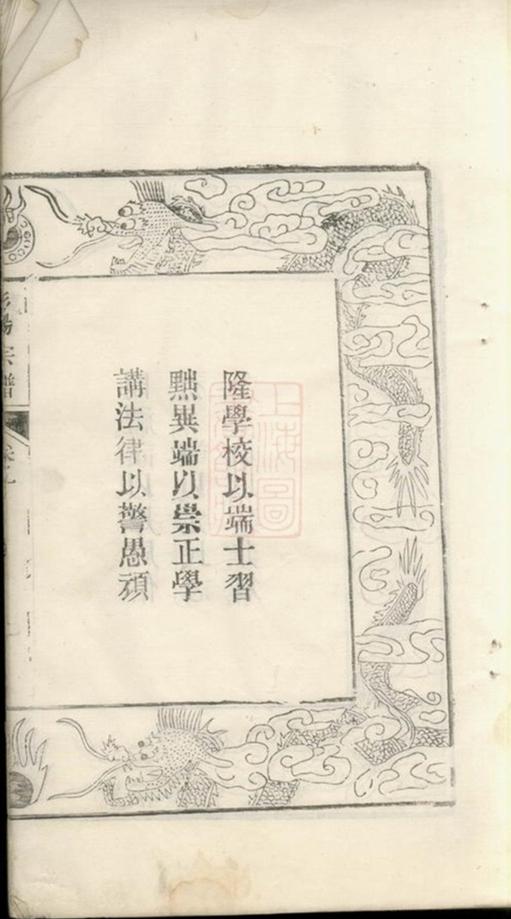 隆學校以端士習
黜異端以崇正學
講法律以警愚頑
宗譜
上海圖